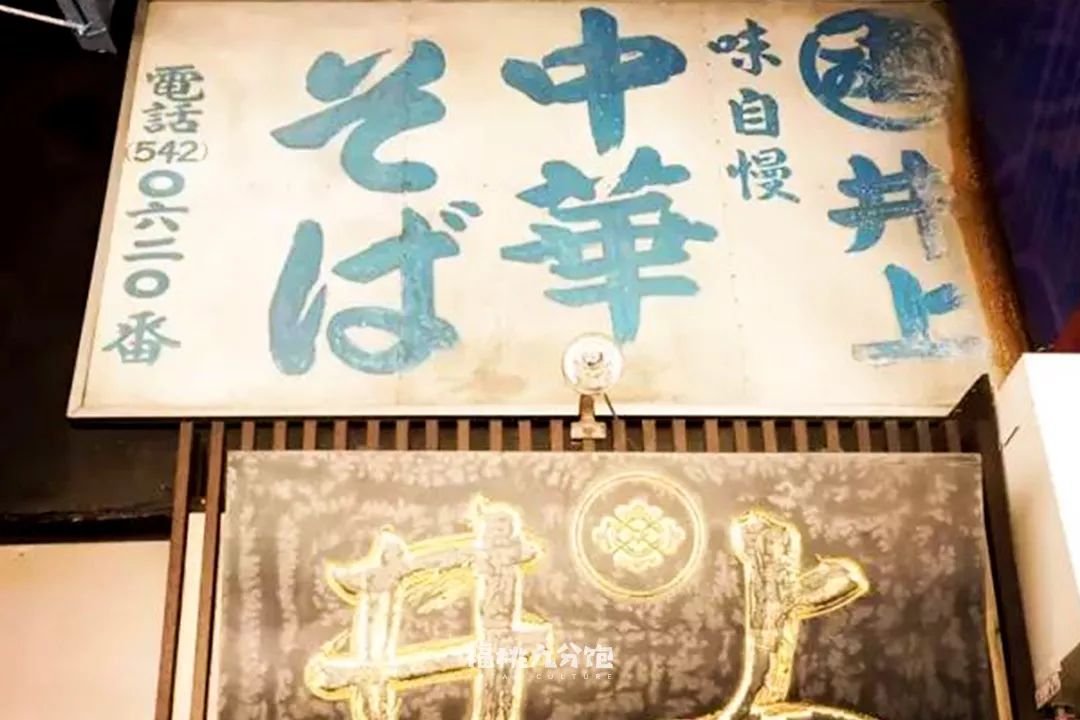 井上
味自慢
中華
そば
電話
(542)
〇六二〇番
井上
福桃九分饱